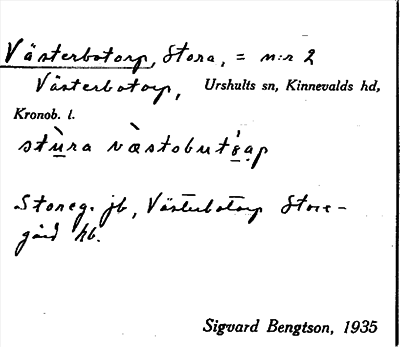 Västerbotorp, Stora, = n:r 2
Västerbotorp, Urshults sn, Kinnevalds hd,
Kronob. l.
stùra væ̀stobut
Storeg. jb, Västerbotorp Store-
gård hb.
Sigvard Bengtson, 1935